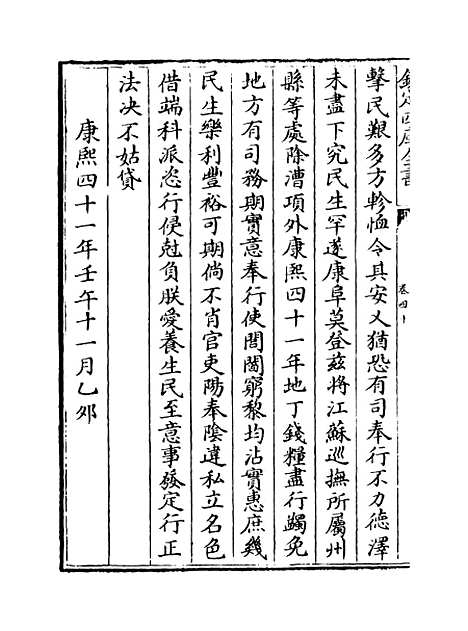 欽定四庫全書
卷四十
擊民艱多方軫恤令其安乂猶恐有司奉行不力德澤
未盡下究民生罕遂康阜莫登兹將江蘇巡撫所屬州
縣等處除漕項外康熙四十一年地丁錢糧盡行蠲免
地方有司務期實意奉行使閭閻窮黎均沾實惠庶幾
民生樂利豐裕可期倘不肖官吏陽奉陰違私立名色
借端科派恣行侵尅負朕愛養生民至意事發定行正
法决不姑貸
康熙四十一年壬午十一月乙夘